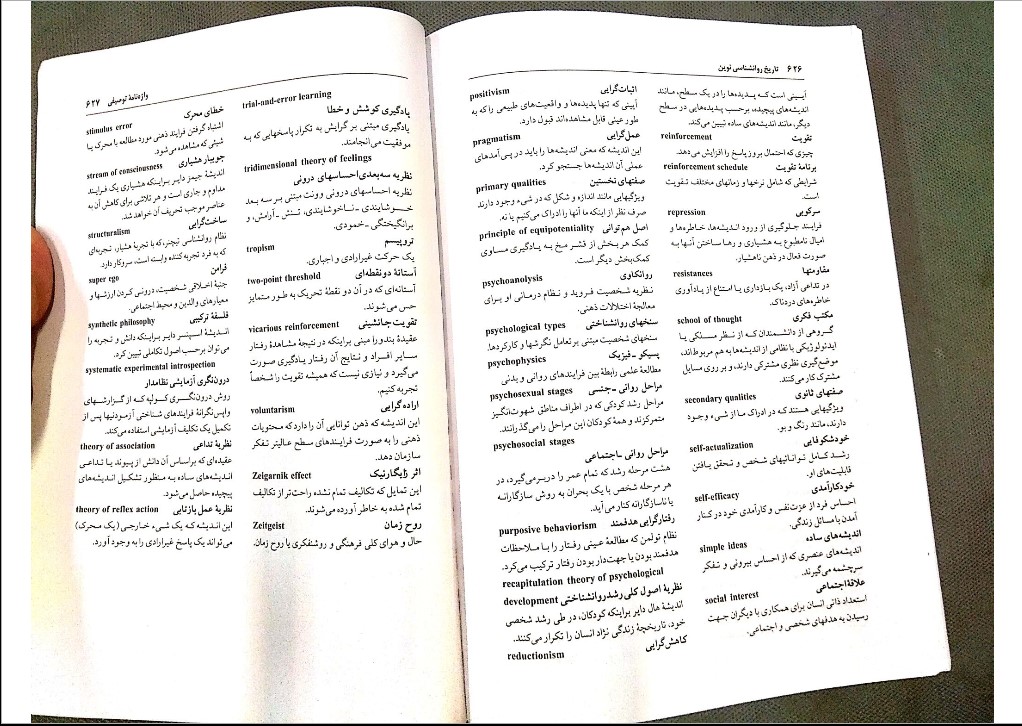 ۶۲۶ تاریخ روانشناسی نوین
positivism اثبات‌گرایی
آیینی که تنها پدیده‌ها و واقعیت‌های طبیعی را که به
طور عینی قابل مشاهده‌اند قبول دارد.
pragmatism عمل‌گرایی
این اندیشه که معنی اندیشه‌ها را باید در پی‌آمدهای
عملی آن اندیشه‌ها جستجو کرد.
primary qualities صفتهای نخستین
ویژگیهایی مانند اندازه و شکل که در شیء وجود دارند
صرف نظر از اینکه ما آنها را ادراک می‌کنیم یا نه.
principle of equipotentiality اصل هم‌توانی
کمک هر بخش از قشر مخ به یادگیری مساوی
کمک بخش دیگر است.
psychoanolysis روانکاوی
نظریه شخصیت فروید و نظام درمانی او برای
معالجهٔ اختلالات ذهنی.
psychological types سنخهای روانشناختی
سنخهای شخصیت مبتنی بر تعامل نگرشها و کارکردها.
psychophysics پسیکو ـ فیزیک
مطالعهٔ علمی رابطهٔ بین فرایندهای روانی و بدنی
psychosexual stages مراحل روانی ـ جنسی
مراحل رشد کودکی که در اطراف مناطق شهوت‌انگیز
متمرکزند و همهٔ کودکان این مراحل را می‌گذرانند.
psychosocial stages
مراحل روانی ـ اجتماعی
هشت مرحله رشد که تمام عمر را دربرمی‌گیرد، در
هر مرحله شخص با یک بحران به روش سازگارانه
یا ناسازگارانه کنار می‌آید.
purposive behaviorism رفتارگرایی هدفمند
نظام تولمن که مطالعهٔ عینی رفتار را با ملاحظات
هدفمند بودن یا جهت‌دار بودن رفتار ترکیب می‌کرد.
recapitulation theory of psychological
development نظریهٔ اصول کلی رشد روانشناختی
اندیشهٔ هال دایر براینکه کودکان، در طی رشد شخصی
خود، تاریخچهٔ زندگی نژاد انسان را تکرار می‌کنند.
reductionism کاهش‌گرایی
آیینی است که پدیده‌ها را در یک سطح، مانند
اندیشه‌های پیچیده، برحسب پدیده‌هایی در سطح
دیگر، مانند اندیشه‌های ساده تبیین می‌کند.
reinforcement تقویت
چیزی که احتمال بروز پاسخ را افزایش می‌دهد.
reinforcement schedule برنامهٔ تقویت
شرایطی که شامل نرخها و زمانهای مختلف تقویت
است.
repression سرکوبی
فرایند جلوگیری از ورود اندیشه‌ها، خاطره‌ها و
امیال نامطبوع به هشیاری و رها ساختن آنها به
صورت فعال در ذهن ناهشیار.
resistances مقاومتها
در تداعی آزاد، یک بازداری یا امتناع از یادآوری
خاطره‌های دردناک.
school of thought مکتب فکری
گروهی از دانشمندان که از نظر مسلکی یا
ایدئولوژیکی یا نظامی از اندیشه‌ها به هم مربوط‌اند،
موضع‌گیری نظری مشترکی دارند، و بر روی مسایل
مشترک کار می‌کنند.
secondary qualities صفتهای ثانوی
ویژگیهایی هستند که در ادراک ما از شیء وجود
دارند، مانند رنگ و بو.
self-actualization خودشکوفایی
رشد کامل تواناییهای شخص و تحقق یافتن
قابلیت‌های او.
self-efficacy خودکارآمدی
احساس فرد از عزت‌نفس و کارآمدی خود در کنار
آمدن با مسائل زندگی.
simple ideas اندیشه‌های ساده
اندیشه‌های عنصری که از احساس بیرونی و تفکر
سرچشمه می‌گیرند.
social interest علاقهٔ اجتماعی
استعداد ذاتی انسان برای همکاری با دیگران جهت
رسیدن به هدفهای شخصی و اجتماعی.
واژه‌نامهٔ توصیفی ۶۲۷
stimulus error خطای محرک
اشتباه گرفتن فرایند ذهنی مورد مطالعه با محرک یا
شیئی که مشاهده می‌شود.
stream of consciousness جویبار هشیاری
اندیشهٔ جیمز دایر براینکه هشیاری یک فرایند
مداوم و جاری است و هر تلاشی برای کاهش آن به
عناصر موجب تحریف آن خواهد شد.
structuralism ساخت‌گرایی
نظام روانشناسی تیچنر، که با تجربهٔ هشیار، تجربه‌ای
که به فرد تجربه کننده وابسته است، سروکار دارد
super ego فرامن
جنبهٔ اخلاقی شخصیت، درونی کردن ارزشها و
معیارهای والدین و محیط اجتماعی.
synthetic philosophy فلسفهٔ ترکیبی
اندیشهٔ اسپنسر دایر براینکه دانش و تجربه را
می‌توان برحسب اصول تکاملی تبیین کرد.
systematic experimental introspection
درون‌نگری آزمایشی نظامدار
روش درون‌نگری کولپه که از گزارشهای
واپس‌نگرانهٔ فرایندهای شناختی آزمودنیها پس از
تکمیل یک تکلیف آزمایشی استفاده می‌کند.
theory of association نظریهٔ تداعی
عقیده‌ای که براساس آن دانش از پیوند یا تداعی
اندیشه‌های ساده به منظور تشکیل اندیشه‌های
پیچیده حاصل می‌شود.
theory of reflex action نظریهٔ عمل بازتابی
این اندیشه که یک شیء خارجی (یک محرک)
می‌تواند یک پاسخ غیرارادی را به وجود آورد.
trial-and-error learning
یادگیری کوشش و خطا
یادگیری مبتنی بر گرایش به تکرار پاسخهایی که به
موفقیت می‌انجامند.
tridimensional theory of feelings
نظریه سه‌بعدی احساسهای درونی
نظریه احساسهای درونی وونت مبنی بر سه بعد
خوشایندی ـ ناخوشایندی، تنش ـ آرامش، و
برانگیختگی ـ خمودی.
tropism تروپیسم
یک حرکت غیرارادی و اجباری.
two-point threshold آستانهٔ دونقطه‌ای
آستانه‌ای که در آن دو نقطهٔ تحریک به طور متمایز
حس می‌شوند.
vicarious reinforcement تقویت جانشینی
عقیدهٔ بندورا مبنی براینکه در نتیجهٔ مشاهدهٔ رفتار
سایر افراد و نتایج آن رفتار یادگیری صورت
می‌گیرد و نیازی نیست که همیشه تقویت را شخصاً
تجربه کنیم.
voluntarism اراده‌گرایی
این اندیشه که ذهن توانایی آن را دارد که محتویات
ذهنی را به صورت فرایندهای سطح عالیتر تفکر
سازمان دهد.
Zeigarnik effect اثر زایگارنیک
این تمایل که تکالیف تمام نشده راحت‌تر از تکالیف
تمام شده به خاطر آورده می‌شوند.
Zeitgeist روح زمان
حال و هوای کلی فرهنگی و روشنفکری یا روح زمان.